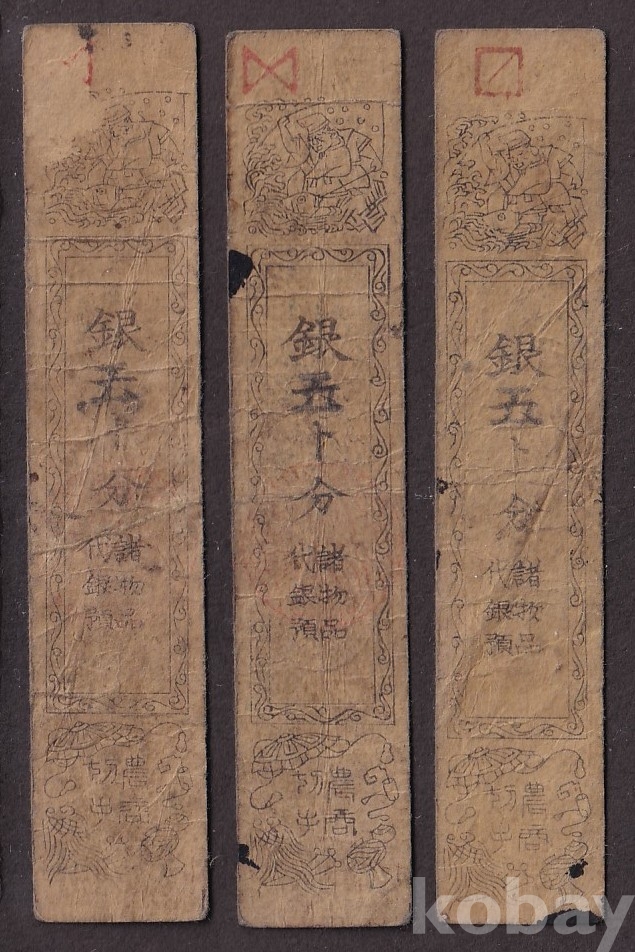 銀五卜分
諸物品
代銀預
農商
銀五卜分
諸物品
代銀預
農商
銀五卜分
諸物品
代銀預
農商
kobay